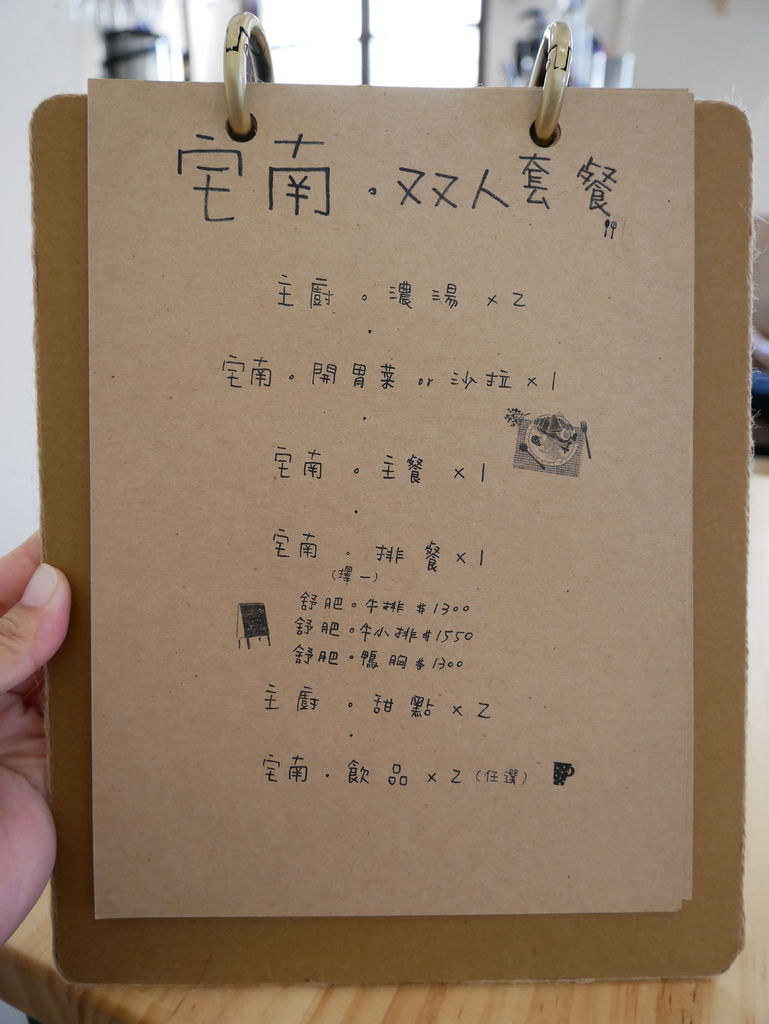 宅南・双人套餐
主廚。濃湯 x 2
宅南。開胃菜 or 沙拉 x 1
宅南。主餐 x 1
宅南。排餐 x 1
(擇一)
舒肥。牛排 $1300
舒肥。牛小排 $1550
舒肥・鴨胸 $1300
主廚。甜點 x 2
宅南・飲品 x 2 (任選)